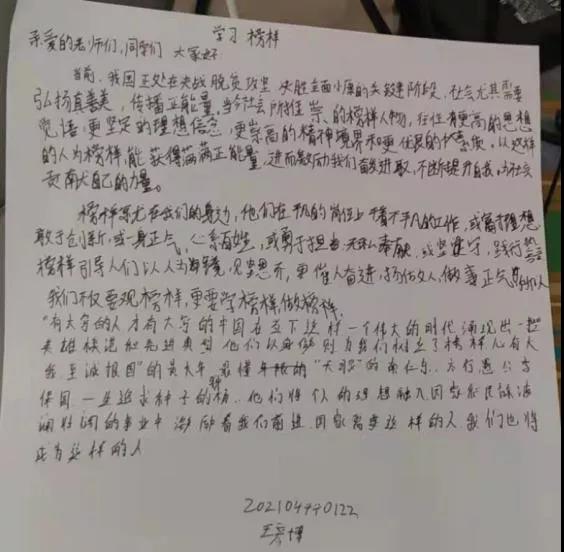 学习 榜样
亲爱的老师们,同学们 大家好
当前,我国正处在决战脱贫攻坚 决胜全面小康的关键阶段,社会尤其需要
弘扬真善美,传播正能量,当今社会所推崇、的榜样人物,往往有更高的思想
觉悟,更坚定的理想信念,更崇高的精神境界和更优良的 素质,以这样
的人为榜样,能获得满满正能量,进而激励我们奋发进取,不断提升自我,为社会
贡献自己的力量。
榜样 在我们的身边,他们在平凡的岗位上干着不平凡的工作,或富于理想
敢于创新,或一身正气,心系百姓,或勇于担当,无私奉献,或坚守,践行
榜样引导人们以人为镜,见贤思齐,更催人奋进
我们不仅要观榜样,更要学榜样,做榜样,
"有大写的人才有大写的中国 这样一个伟大的时代 涌现出一
英雄模范和先进典型 他们以 为我们树立了榜样 心有大
我 至诚报国"的黄大年 最懂 "天眼"的南仁东
一 追求种子的 他们将个人的理想融入国家和民族
阔的事业中 激励着我们前进 国家需要这样的人 我们也将
成为这样的人